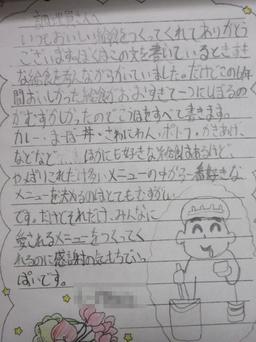 調理員さんへ
いつもおいしい給食をつくってくれてありがとう
ございます。ぼくはこの文を書いているときすき
な給食を考えながらかいていました。だけどこの6年
間おいしかった給食がおおすぎて一つにしぼるの
がむずかしかったのでここはすべて書きます。
カレー・まーぼー丼・さわにわん・ポトフ・かきあげ、
などなど ほかにも好きな給食はあるけど、
やっぱりこれだけ多いメニューの中から一番好きな
メニューを決めるのはとてもむずかしい
です。だけどそれだけ、みんなに
愛されるメニューをつくってく
れるのに感謝の気もちでいっ
ぱいです。